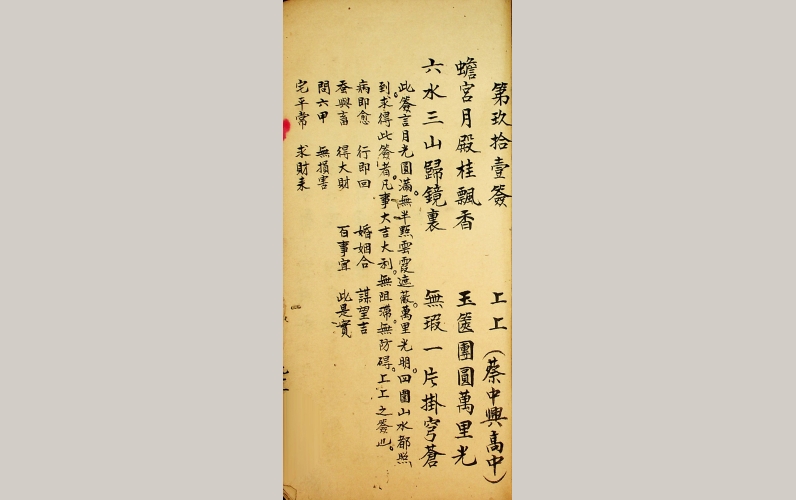 第玖拾壹簽 上上(蔡中興高中)
蟾宮月殿桂飄香 玉篋團圓萬里光
六水三山歸鏡裏 無瑕一片掛穹蒼
此簽言月光圓滿。無半點雲霞遮蔽。萬里光明。四圍山水都照
到。求得此簽者。凡事大吉大利。無阻滯。無防碍。上上之簽也。
病即愈 行即回 婚姻合 謀望吉
蚕興畜 得大財 百事宜 此是實
問六甲 無損害
宅平常 求財未